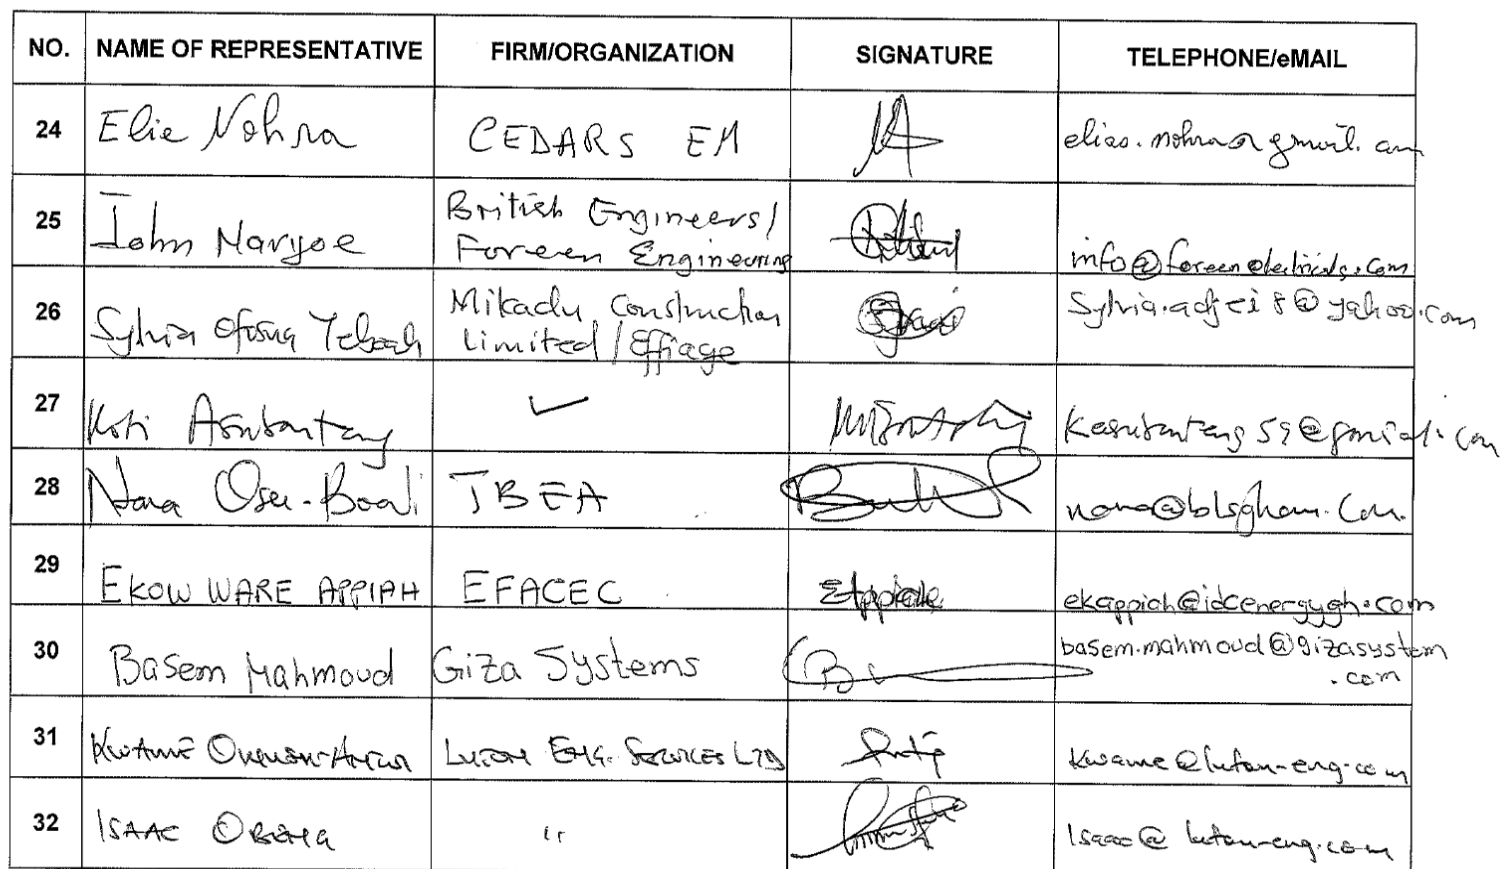 NO. NAME OF REPRESENTATIVE FIRM/ORGANIZATION SIGNATURE TELEPHONE/eMAIL
24 Elie Nohra CEDARS EM elias.nohra@gmail.com
25 John Narjoe British Engineers/
Foreen Engineering info@foreenelectricals.com
26 Sylvia Ofosua Yeboah Mikadu Construction
Limited/Effiage Sylvia.adjei8@yahoo.com
27 Kofi Asubonteng ✓ Kasubonteng59@gmail.com
28 Nana Osei-Boadi TBEA nana@blsgham.com
29 EKOW WARE APPIAH EFACEC ekappiah@idcenergygh.com
30 Basem Mahmoud Giza Systems basem.mahmoud@gizasystem
.com
31 KWAME LUTON ENG. SERVICES LTD Kwame@luton-eng.com
32 ISAAC OBENG " Isaac@luton-eng.com